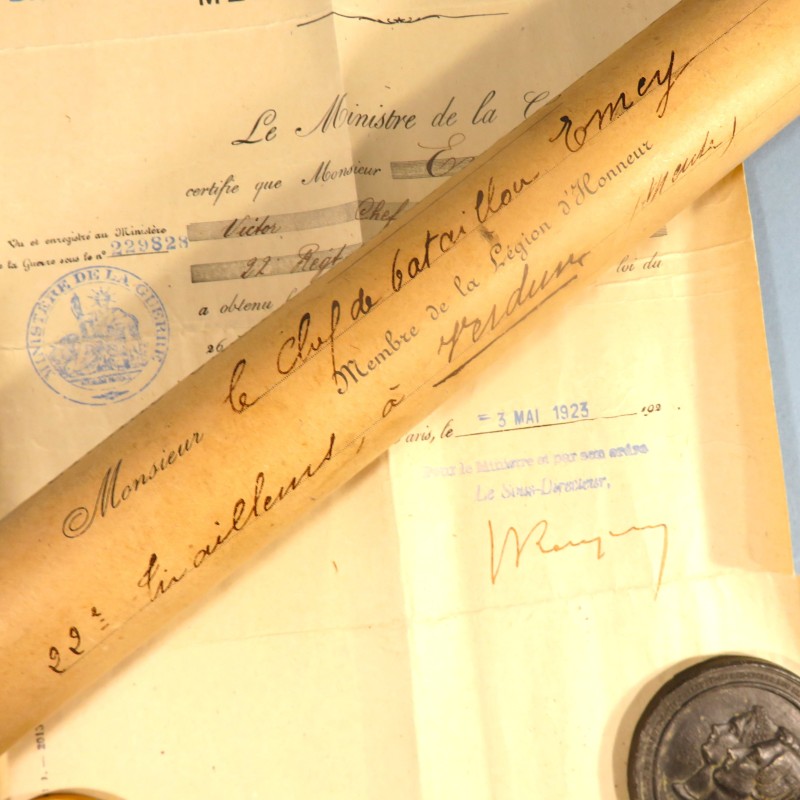 Le Ministre de la
certifie que Monsieur
Vu et enregistré au Ministère
la Guerre sous le n° 229828
Victor Chef
22 Régt
a obtenu
26
loi du
MINISTÈRE DE LA GUERRE
Paris, le = 3 MAI 1923 192
Pour le Ministre et par son ordre
Le Sous-Directeur,
Monsieur le Chef de bataillon Emey
Membre de la Légion d'Honneur
22e Tirailleurs, à Verdun (Meuse)